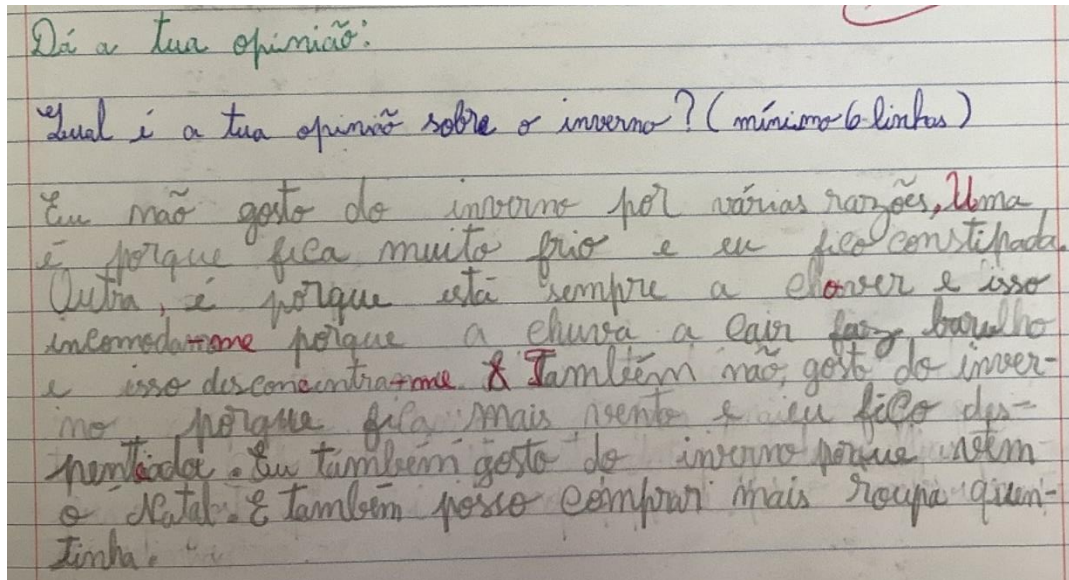 Dá a tua opinião:
Qual é a tua opinião sobre o inverno? (mínimo 6 linhas)
Eu não gosto do inverno por várias razões, Uma
é porque fica muito frio e eu fico constipada.
Outra, é porque está sempre a chover e isso
incomoda-me porque a chuva a cair faz barulho
e isso desconcentra-me. Também não gosto do inver-
no porque fica mais vento e eu fico des-
penteada. Eu também gosto do inverno porque vem
o Natal. E também posso comprar mais roupa quen-
tinha.